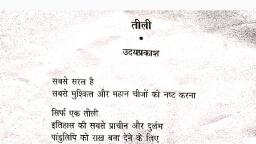 तीली
उदयप्रकाश
सबसे सरल है
सबसे मुश्किल और महान चीजों को नष्ट करना
सिर्फ एक तीली
इतिहास की सबसे प्राचीन और दुर्लभ
पांडुलिपि को राख बना देने के लिए